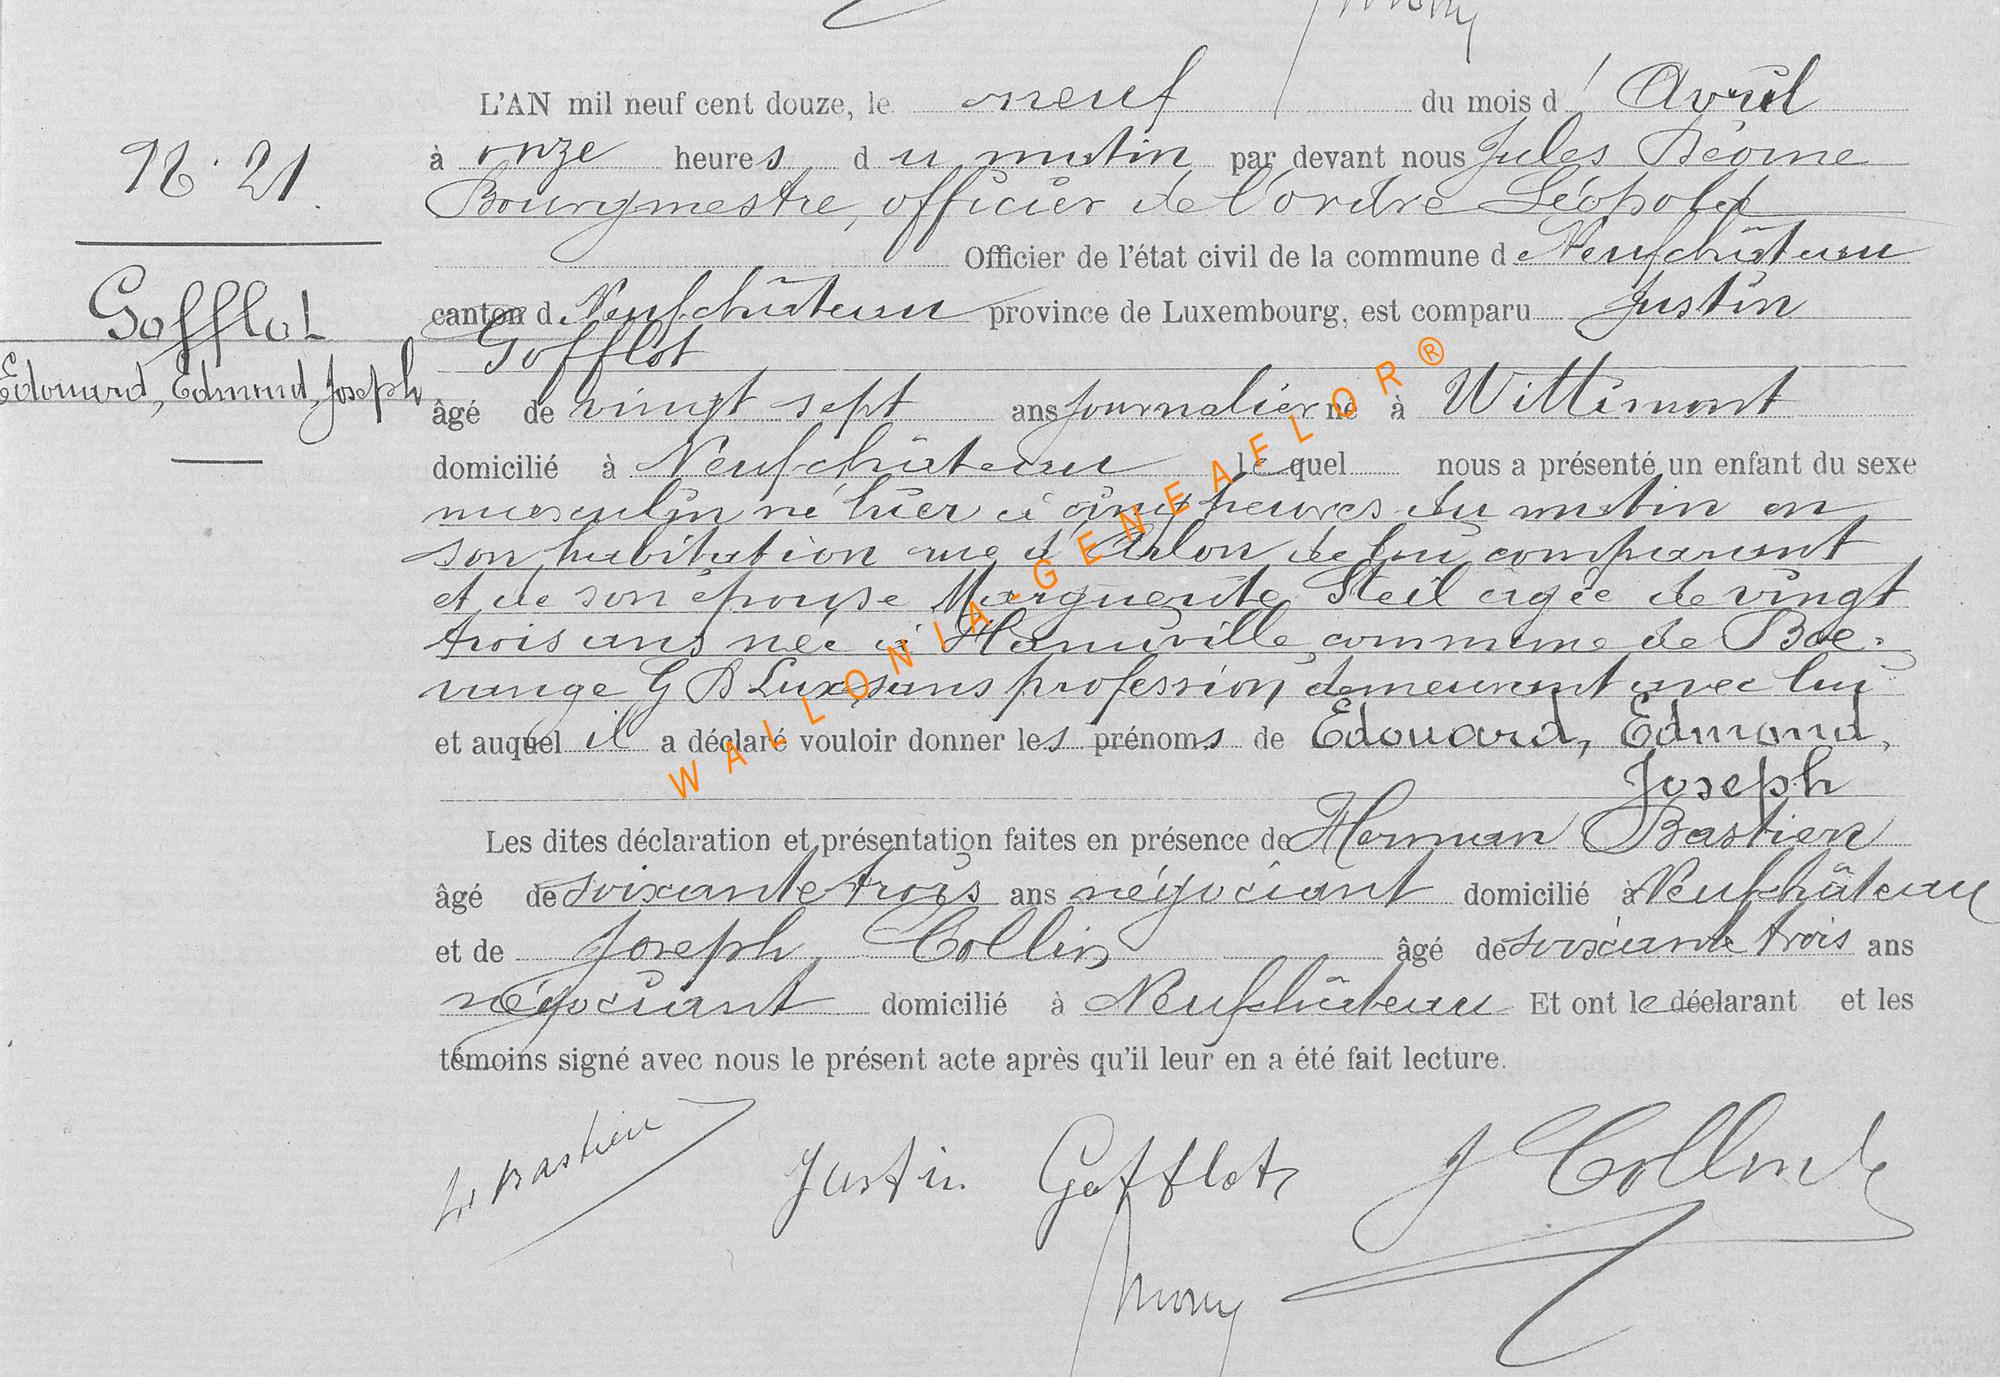 L'AN mil neuf cent douze, le neuf du mois d' Avril
N. 21
à onze heures du matin par devant nous Jules
Bourgmestre, officier de l'ordre Léopold
Officier de l'état civil de la commune de Neufchâteau
Gofflot
canton de Neufchâteau province de Luxembourg, est comparu Justin
Gofflot
Edouard, Edmond, Joseph
âgé de vingt sept ans journalier né à Wittimont
domicilié à Neufchâteau lequel nous a présenté un enfant du sexe
masculin né hier à cinq heures du matin en
son habitation rue d'Arlon de lui comparant
et de son épouse Marguerite Steil âgée de vingt
trois ans née à commune de Boe-
vange G D Lux sans profession demeurant avec lui
et auquel il a déclaré vouloir donner les prénoms de Edouard, Edmond,
Joseph
Les dites déclaration et présentation faites en présence de Herman Bastien
âgé de soixante trois ans négociant domicilié à Neufchâteau
et de Joseph Collin âgé de soixante trois ans
négociant domicilié à Neufchâteau Et ont le déclarant et les
témoins signé avec nous le présent acte après qu'il leur en a été fait lecture.
H Bastien Justin Gofflot J Collin
WALLONIA-GENEAFLOR®